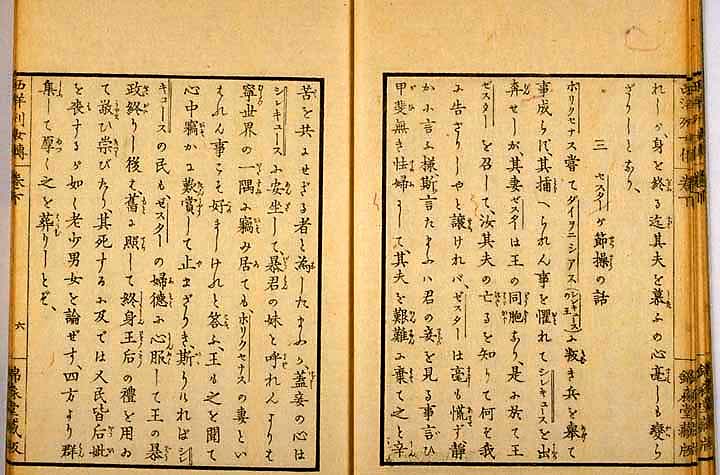 れしが、身を終る迄其夫を慕ふの心毫しも變ら
ざりしとあり、
三 ゼスターが節操の話
ホリクセナス嘗てダイヲニシアス(シレキュースの王)に叛き兵を擧て
事成らず、其捕へられん事を懼れてシレキュースを出
奔せしが、其妻ゼスターは王の同胞なり、是に於て王
ゼスターを召して、汝其夫の亡るを知りて何を我
に告ざりしやと讓けれバ、ゼスターは毫も慌ず靜
かに言ふ様、斯言たまふハ君の妾を見る事言ひ
甲斐無き性婦にして、其夫を艱難に棄て之と辛
苦を共にせざる者と為したまふか、蓋妾の心は
シレキュースに安坐して、暴君の妹と呼れんよりも
寧世界の一隅に竄み居てもホリクセナスの妻とい
はれん事こそ好ましけれと答ふ、王も之を聞て
心中竊かに歎賞して止まざりき、斯りければシレ
キュースの民もゼスターの婦德に心服して王の暴
政終りし後も、舊に照して終身王后の禮を用ゐ
て敬ひ崇びたり、其死するに及では又民皆后妣
を喪するが如く老少男女を論ぜず、四方より群
集して厚く之を葬りしとぞ、
西洋列女傳 卷下 六 錦森堂藏版